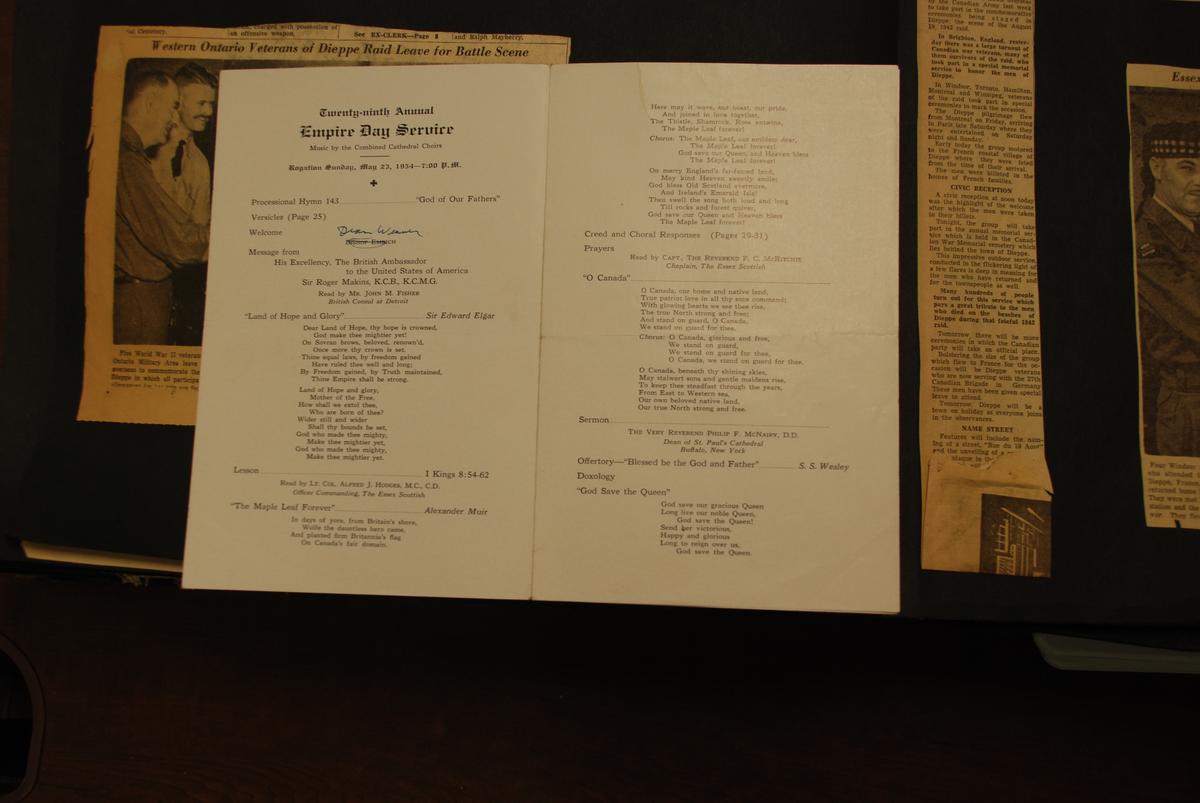 See EX-CLERK—Page 8
and Ralph Mayberry,
an offensive weapon.
Western Ontario Veterans of Dieppe Raid Leave for Battle Scene
Five World War II veteran
Ontario Military Area leave
overseas to commemorate the
Dieppe in which all participa
Twenty-ninth Annual
Empire Day Service
Music by the Combined Cathedral Choirs
Rogation Sunday, May 23, 1954—7:00 P.M.
Processional Hymn 143 "God of Our Fathers"
Versicles (Page 25)
Welcome Dean Weaver
Bishop Emrich
Message from
His Excellency, The British Ambassador
to the United States of America
Sir Roger Makins, K.C.B., K.C.M.G.
Read by Mr. John M. Fisher
British Consul at Detroit
"Land of Hope and Glory" Sir Edward Elgar
Dear Land of Hope, thy hope is crowned,
God make thee mightier yet!
On Sovran brows, beloved, renown'd,
Once more thy crown is set.
Thine equal laws, by freedom gained
Have ruled thee well and long;
By Freedom gained, by Truth maintained,
Thine Empire shall be strong.
Land of Hope and glory,
Mother of the Free,
How shall we extol thee,
Who are born of thee?
Wider still and wider
Shall thy bounds be set,
God who made thee mighty,
Make thee mightier yet,
God who made thee mighty,
Make thee mightier yet.
Lesson I Kings 8:54-62
Read by Lt. Col. Alfred J. Hodges, M.C., C.D.
Officer Commanding, The Essex Scottish
"The Maple Leaf Forever" Alexander Muir
In days of yore, from Britain's shore,
Wolfe the dauntless hero came,
And planted firm Britannia's flag
On Canada's fair domain.
Here may it wave, our boast, our pride,
And joined in love together,
The Thistle, Shamrock, Rose entwine,
The Maple Leaf forever!
Chorus: The Maple Leaf, our emblem dear,
The Maple Leaf forever!
God save our Queen, and Heaven bless
The Maple Leaf forever!
On merry England's far-famed land,
May kind Heaven sweetly smile;
God bless Old Scotland evermore,
And Ireland's Emerald Isle!
Then swell the song both loud and long
Till rocks and forest quiver,
God save our Queen and Heaven bless
The Maple Leaf forever!
Creed and Choral Responses (Pages 29-31)
Prayers
Read by Capt. The Reverend F. C. McRitchie
Chaplain, The Essex Scottish
"O Canada"
O Canada, our home and native land,
True patriot love in all thy sons command;
With glowing hearts we see thee rise,
The true North strong and free;
And stand on guard, O Canada,
We stand on guard for thee.
Chorus: O Canada, glorious and free,
We stand on guard,
We stand on guard for thee,
O Canada, we stand on guard for thee.
O Canada, beneath thy shining skies,
May stalwart sons and gentle maidens rise,
To keep thee steadfast through the years,
From East to Western sea,
Our own beloved native land,
Our true North strong and free.
Sermon
The Very Reverend Philip F. McNairy, D.D.
Dean of St. Paul's Cathedral
Buffalo, New York
Offertory—"Blessed be the God and Father" S. S. Wesley
Doxology
"God Save the Queen"
God save our gracious Queen
Long live our noble Queen,
God save the Queen!
Send her victorious,
Happy and glorious
Long to reign over us,
God save the Queen.
of the Canadian Army last week
to take part in the commemorative
ceremonies being staged in
Dieppe, the scene of the August
19, 1942 raid.
In Brighton, England, yester-
day there was a large turnout of
Canadian war veterans, many of
them survivors of the raid, who
took part in a special memorial
service to honor the men of
Dieppe.
In Windsor, Toronto, Hamilton,
Montreal and Winnipeg, veterans
of the raid took part in special
ceremonies to mark the occasion.
The Dieppe pilgrimage flew
from Montreal on Friday, arriving
in Paris late Saturday where they
were entertained on Saturday
night and Sunday.
Early today the group motored
to the French coastal village of
Dieppe where they were feted
from the time of their arrival.
The men were billeted in the
homes of French families.
CIVIC RECEPTION
A civic reception at noon today
was the highlight of the welcome
after which the men were taken
to their billets.
Tonight, the group will take
part in the annual memorial ser-
vice which is held in the Canad-
ian War Memorial cemetery which
lies behind the town of Dieppe.
This impressive outdoor service,
conducted in the flickering light of
a few flares is deep in meaning for
the men who have returned and
for the townspeople as well.
Many hundreds of people
turn out for this service which
pays a great tribute to the men
who died on the beaches of
Dieppe during that fateful 1942
raid.
Tomorrow, there will be more
ceremonies in which the Canadian
party will take an official place.
Bolstering the size of the group
which flew to France for the oc-
casion will be Dieppe veterans
who are now serving with the 27th
Canadian Brigade in Germany
These men have been given special
leave to attend.
Tomorrow, Dieppe will be a
town on holiday as everyone joins
in the observances.
NAME STREET
Features will include the nam-
ing of a street, "Rue du 19 Aout"
and the unveiling of a
plaque in the
Essex
Four Windsor
who attended
Dieppe, France
returned home
They were met
station and the
war. They flew